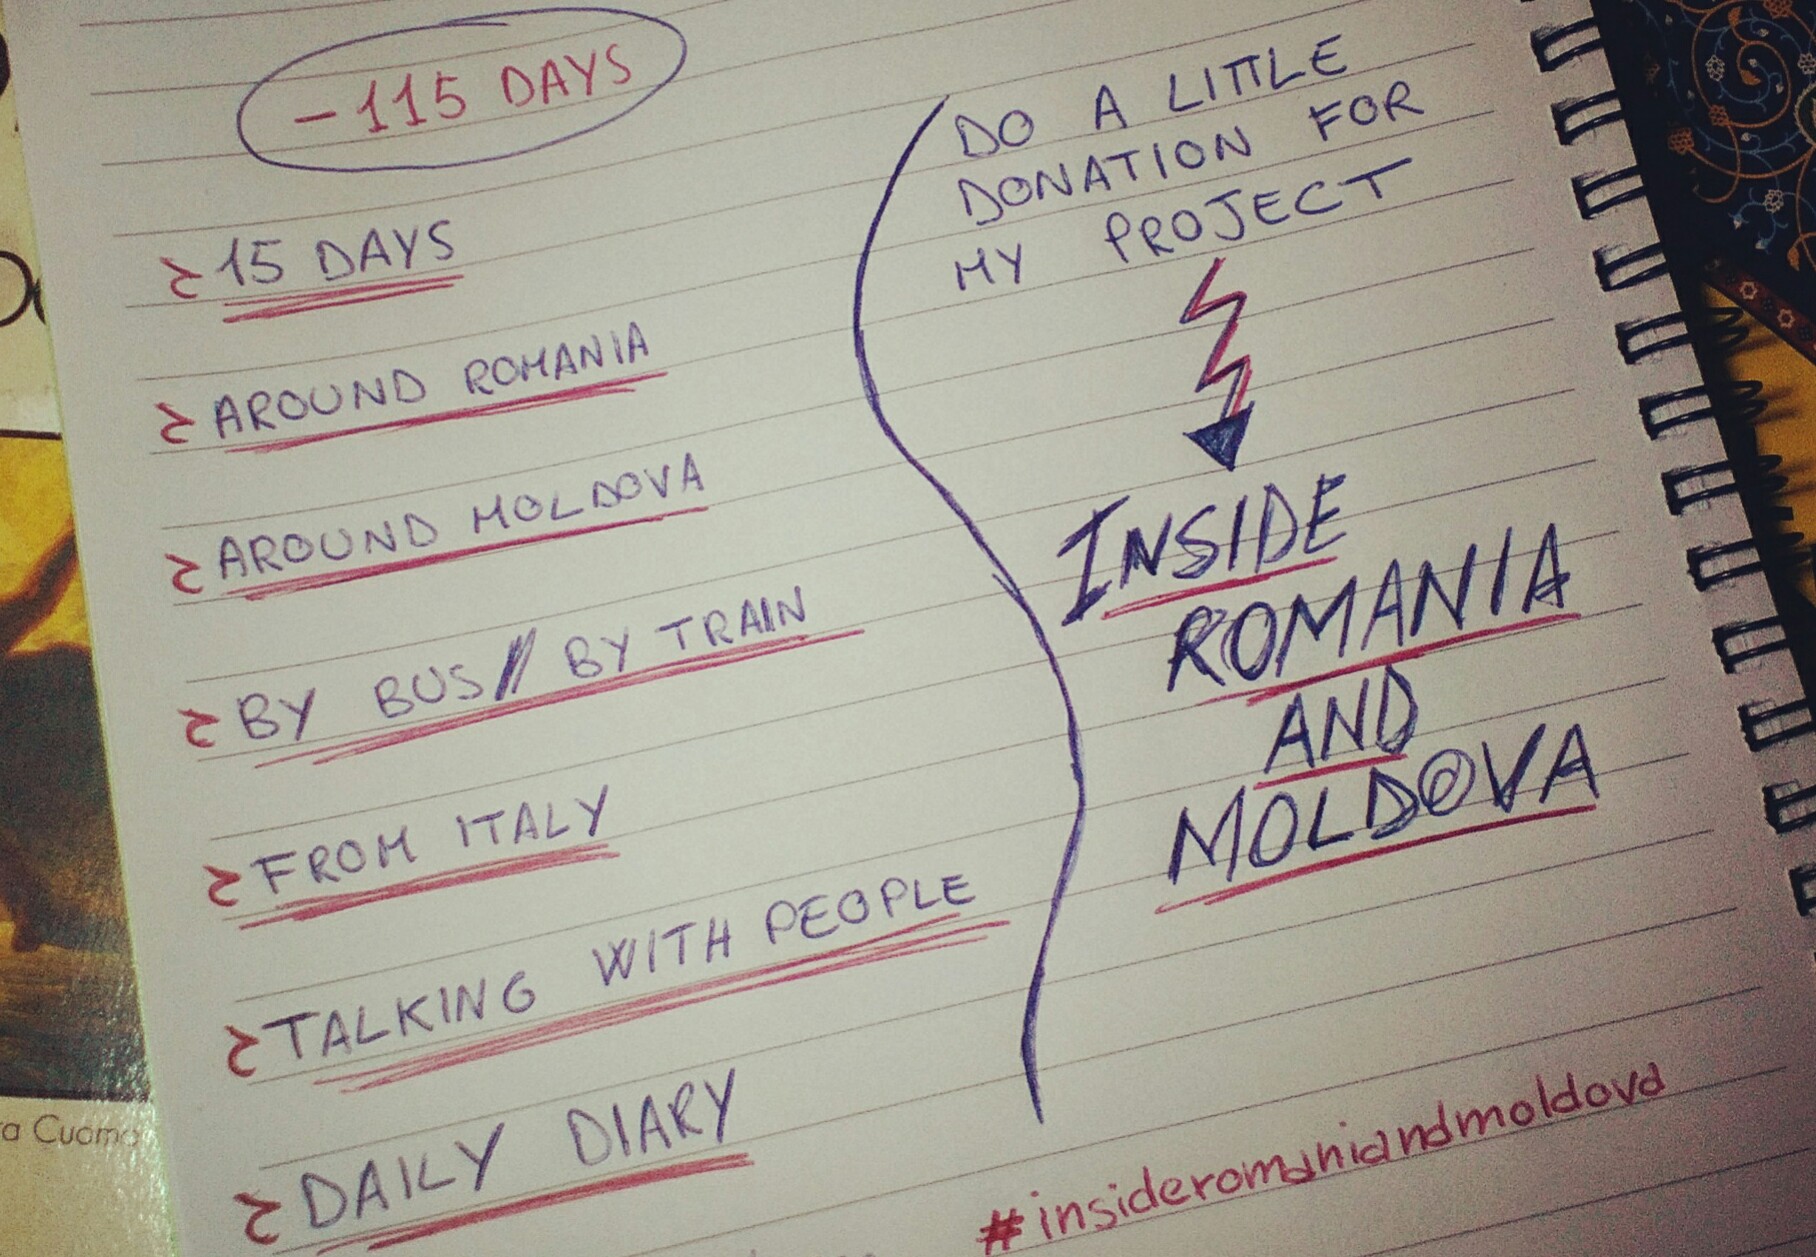 -115 DAYS
15 DAYS
AROUND ROMANIA
AROUND MOLDOVA
BY BUS // BY TRAIN
FROM ITALY
TALKING WITH PEOPLE
DAILY DIARY
DO A LITTLE
DONATION FOR
MY PROJECT
INSIDE
ROMANIA
AND
MOLDOVA
#insideromaniandmoldova
Cuomo